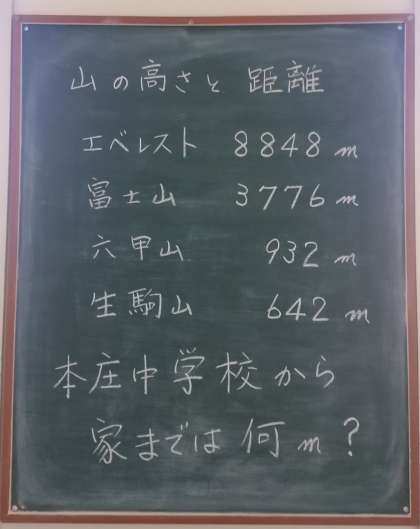 山の高さと 距離
エベレスト 8848m
富士山 3776m
六甲山 932m
生駒山 642m
本庄中学校から
家までは何m?